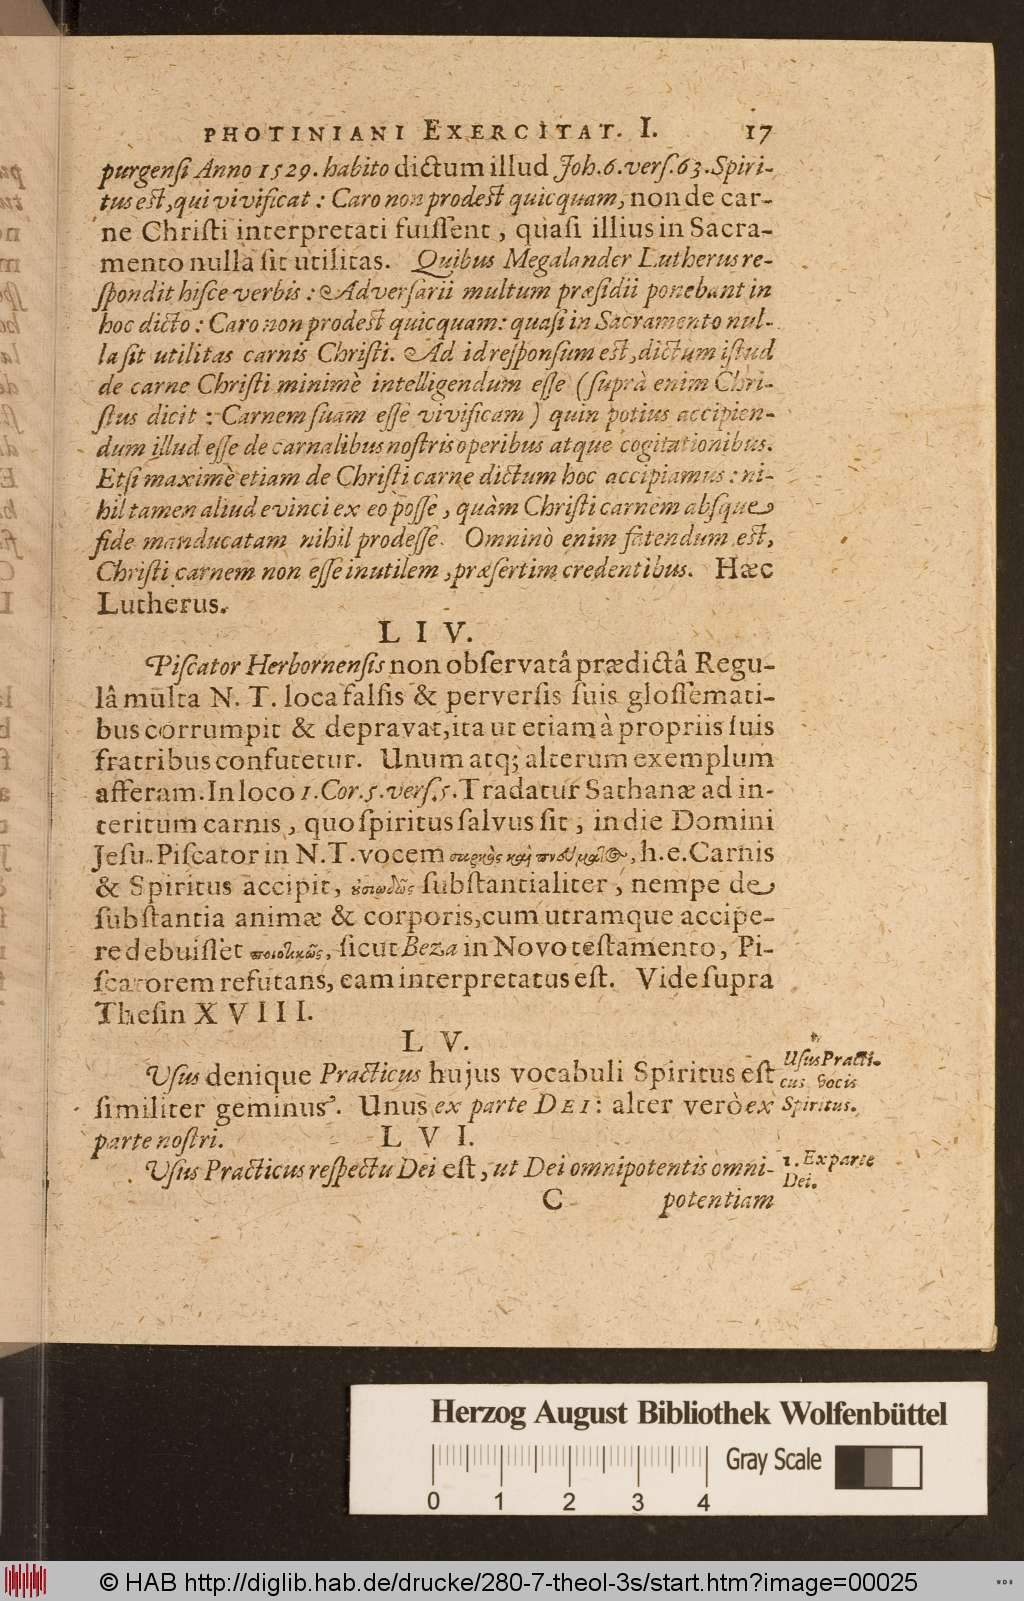 PHOTINIANI EXERCITAT. I. 17
purgensi Anno 1529. habito dictum illud Joh. 6. vers. 63. Spiri-
tus est, qui vivificat: Caro non prodest quicquam, non de car-
ne Christi interpretati fuissent, quasi illius in Sacra-
mento nulla sit utilitas. Quibus Megalander Lutherus re-
spondit hisce verbis: Adversarii multum præsidii ponebant in
hoc dicto: Caro non prodest quicquam: quasi in Sacramento nul-
la sit utilitas carnis Christi. Ad id responsum est, dictum istud
de carne Christi minimè intelligendum esse (suprà enim Chri-
stus dicit: Carnem suam esse vivificam) quin potius accipien-
dum illud esse de carnalibus nostris operibus atque cogitationibus.
Etsi maximè etiam de Christi carne dictum hoc accipiamus: ni-
hil tamen aliud evinci ex eo posse, quàm Christi carnem absque
fide manducatam nihil prodesse. Omninò enim fatendum est,
Christi carnem non esse inutilem, præsertim credentibus. Hæc
Lutherus.
LIV.
Piscator Herbornensis non observatâ prædictâ Regu-
lâ multa N. T. loca falsis & perversis suis glossemati-
bus corrumpit & depravat, ita ut etiam à propriis suis
fratribus confutetur. Unum atq; alterum exemplum
afferam. In loco 1. Cor. 5. vers. 5. Tradatur Sathanæ ad in-
teritum carnis, quo spiritus salvus sit, in die Domini
Jesu. Piscator in N. T. vocem σαρκὸς καὶ πνεύματος, h. e. Carnis
& Spiritus accipit, οὐσιωδῶς substantialiter, nempe de
substantia animæ & corporis, cum utramque accipe-
re debuisset ποιοτικῶς, sicut Beza in Novo testamento, Pi-
scatorem refutans, eam interpretatus est. Vide supra
Thesin XVIII.
LV.
Usus denique Practicus hujus vocabuli Spiritus est
similiter geminus. Unus ex parte DEI: alter verò ex
parte nostri. LVI.
Usus Practicus respectu Dei est, ut Dei omnipotentis omni-
C potentiam
Usus Practi-
cus vocis
Spiritus.
1. Ex parte
Dei.
Herzog August Bibliothek Wolfenbüttel
Gray Scale
0 1 2 3 4
© HAB http://diglib.hab.de/drucke/280-7-theol-3s/start.htm?image=00025